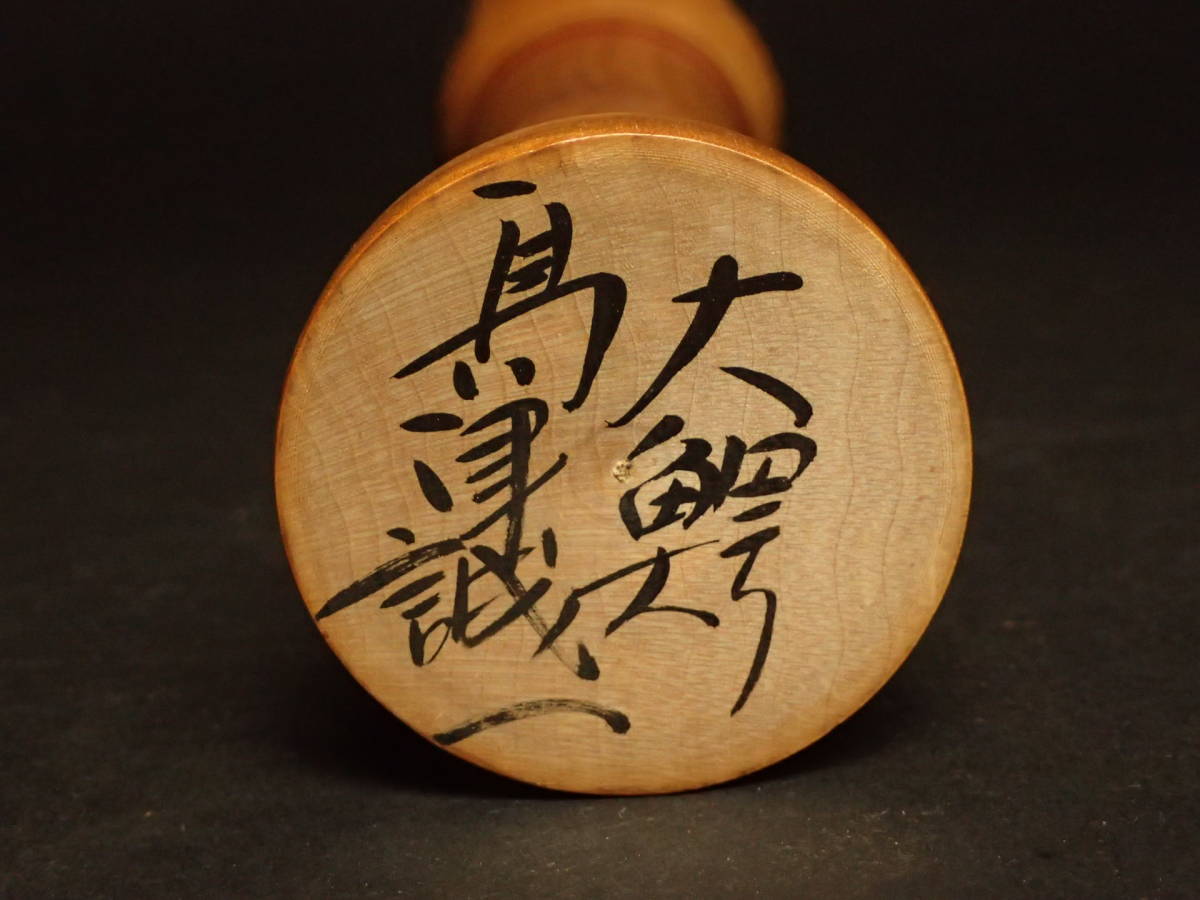 大鰐
高津誠一